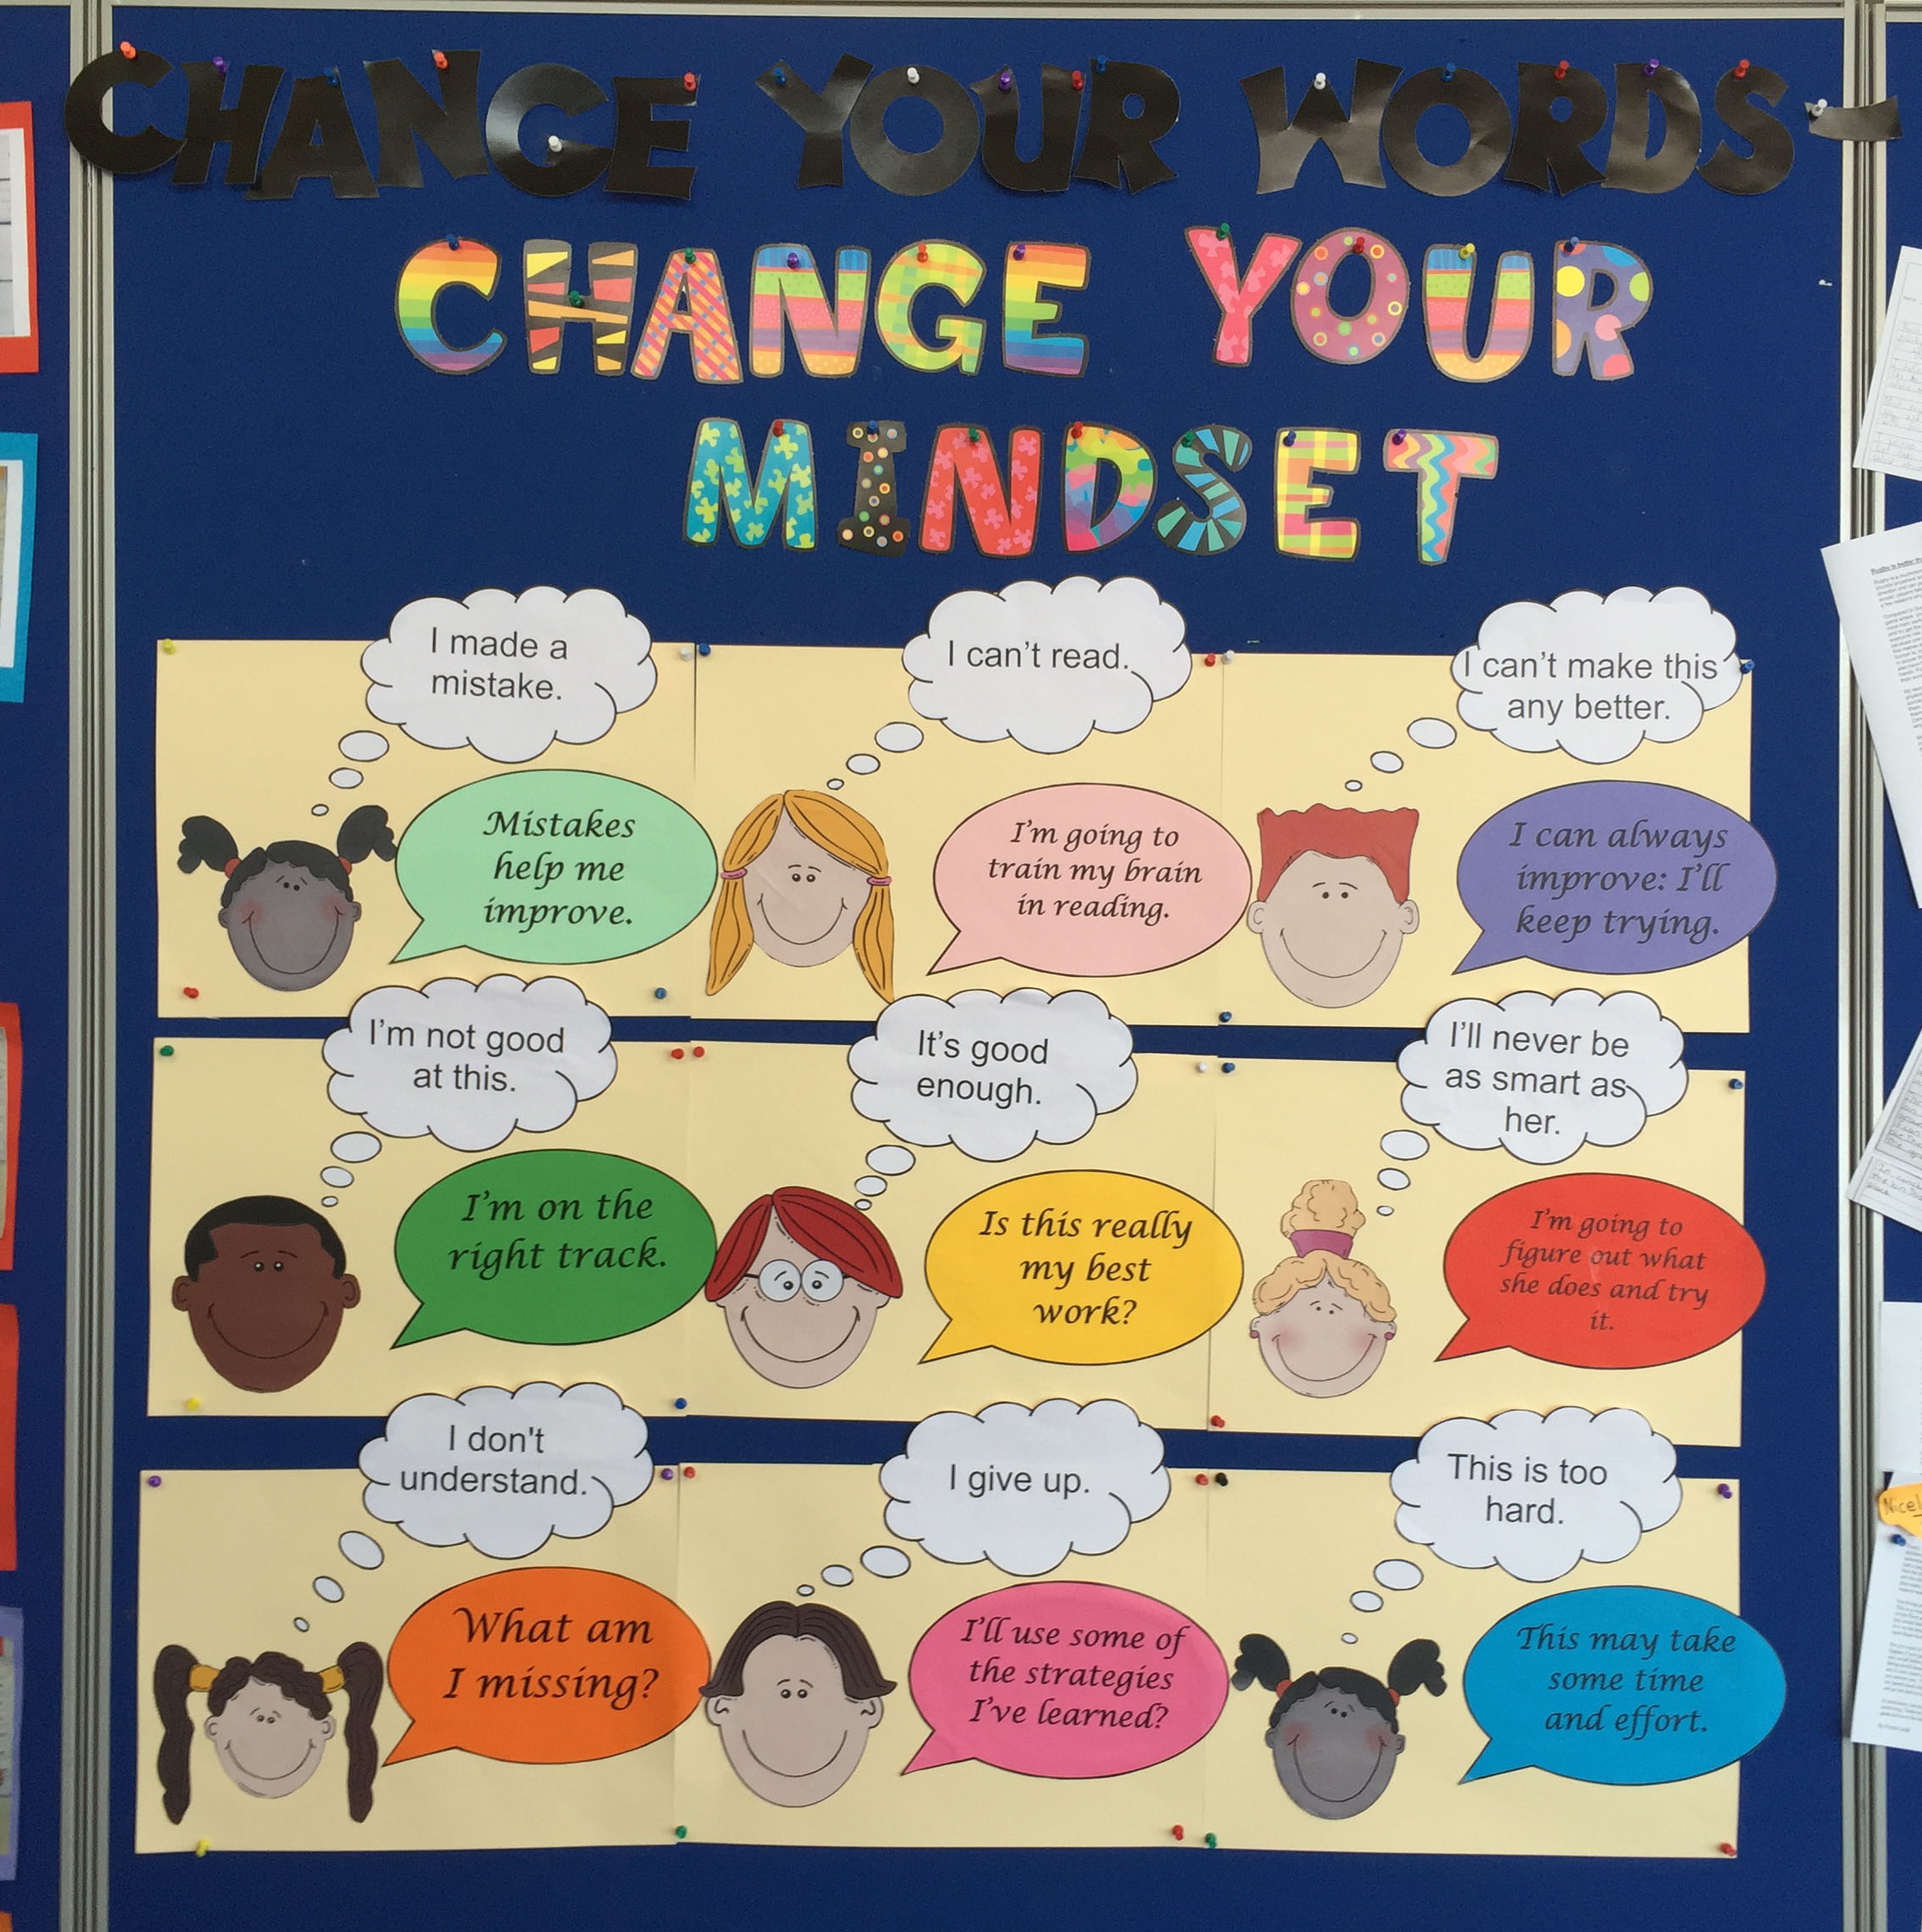 CHANGE YOUR WORDS-
CHANGE YOUR
MINDSET
I made a
mistake.
Mistakes
help me
improve.
I can't read.
I'm going to
train my brain
in reading.
I can't make this
any better.
I can always
improve: I'll
keep trying.
I'm not good
at this.
I'm on the
right track.
It's good
enough.
Is this really
my best
work?
I'll never be
as smart as
her.
I'm going to
figure out what
she does and try
it.
I don't
understand.
What am
I missing?
I give up.
I'll use some of
the strategies
I've learned?
This is too
hard.
This may take
some time
and effort.
Nice!